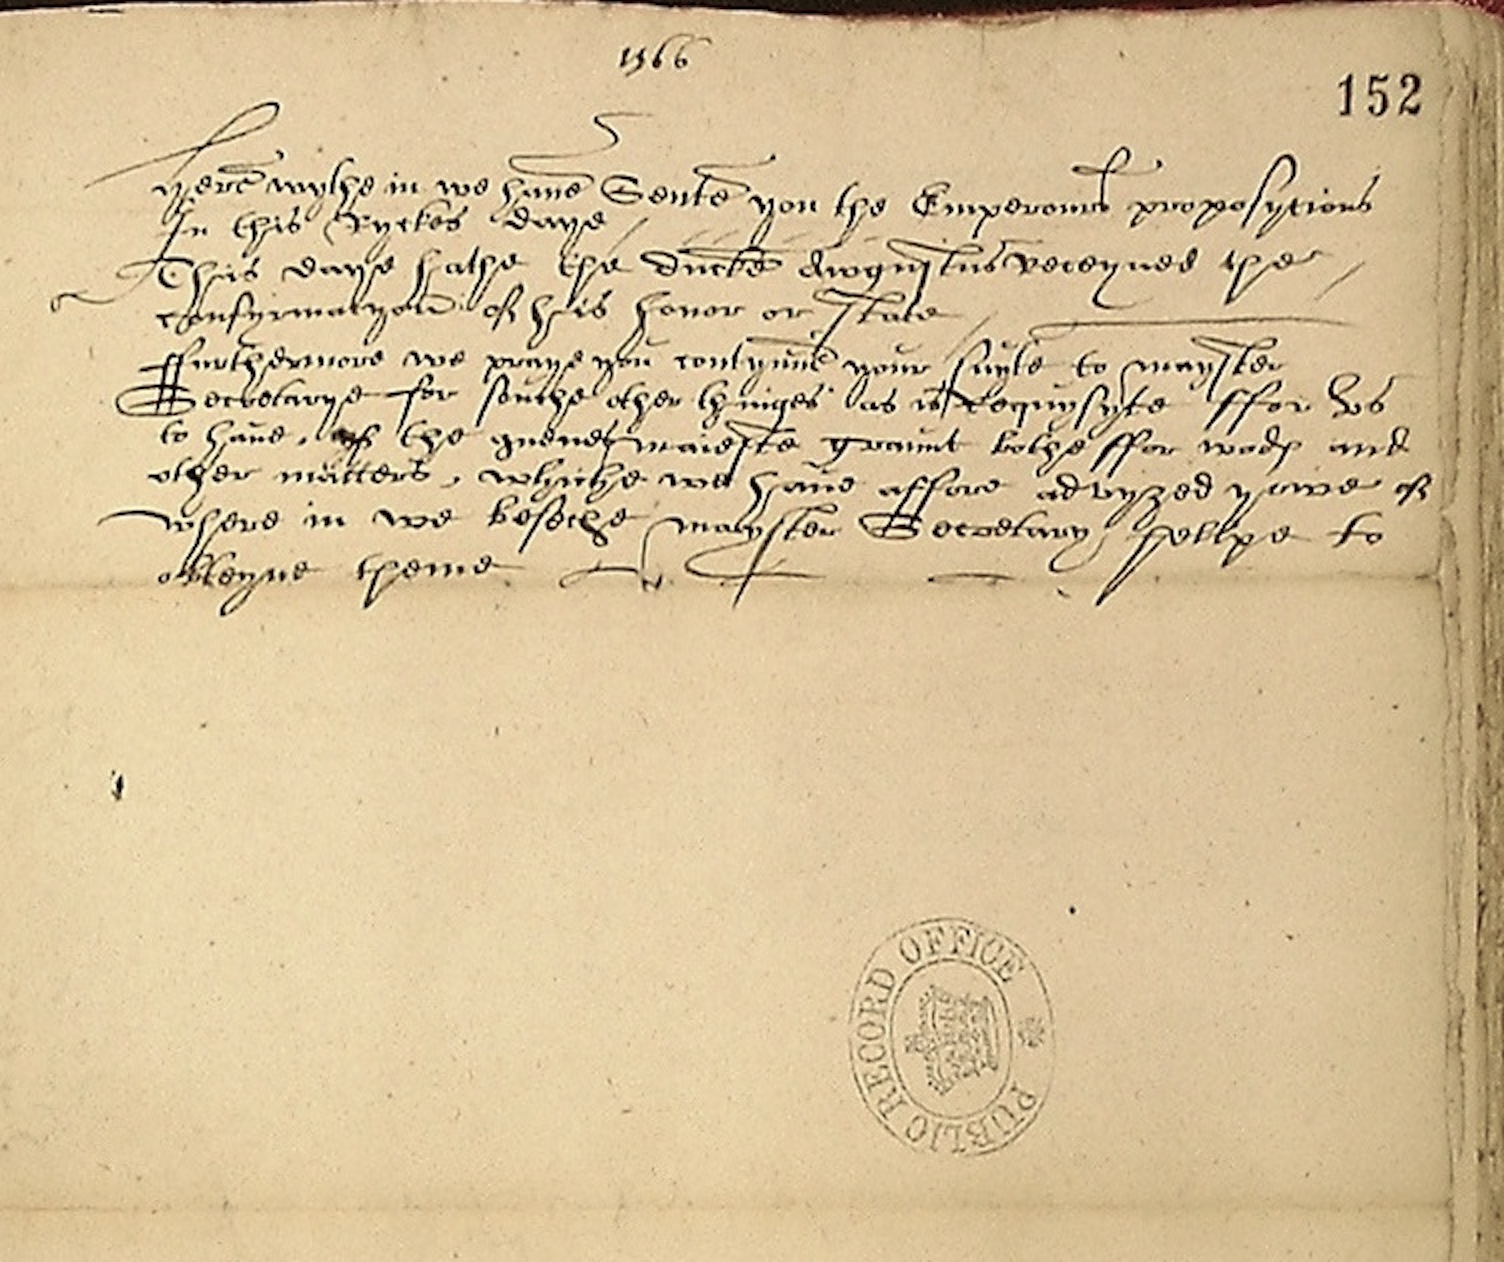 1566
152
Here wythe in we have Sente you the Emperours proposytions
In this Ryckes daye
This daye hathe the ducke Awgustus receyued the
confyrmatyon of his honor or state
ffurthermore we praye you contynue your suyte to mayster
Secretarye for souche other thinges as is requysyte ffor vs
to haue, of the quenes maieste graunt bothe ffor wod and
other matters, whiche we haue affore advyzed yowe of
where in we beseche mayster Secretary helpe to
obteyne theme
PUBLIC RECORD OFFICE